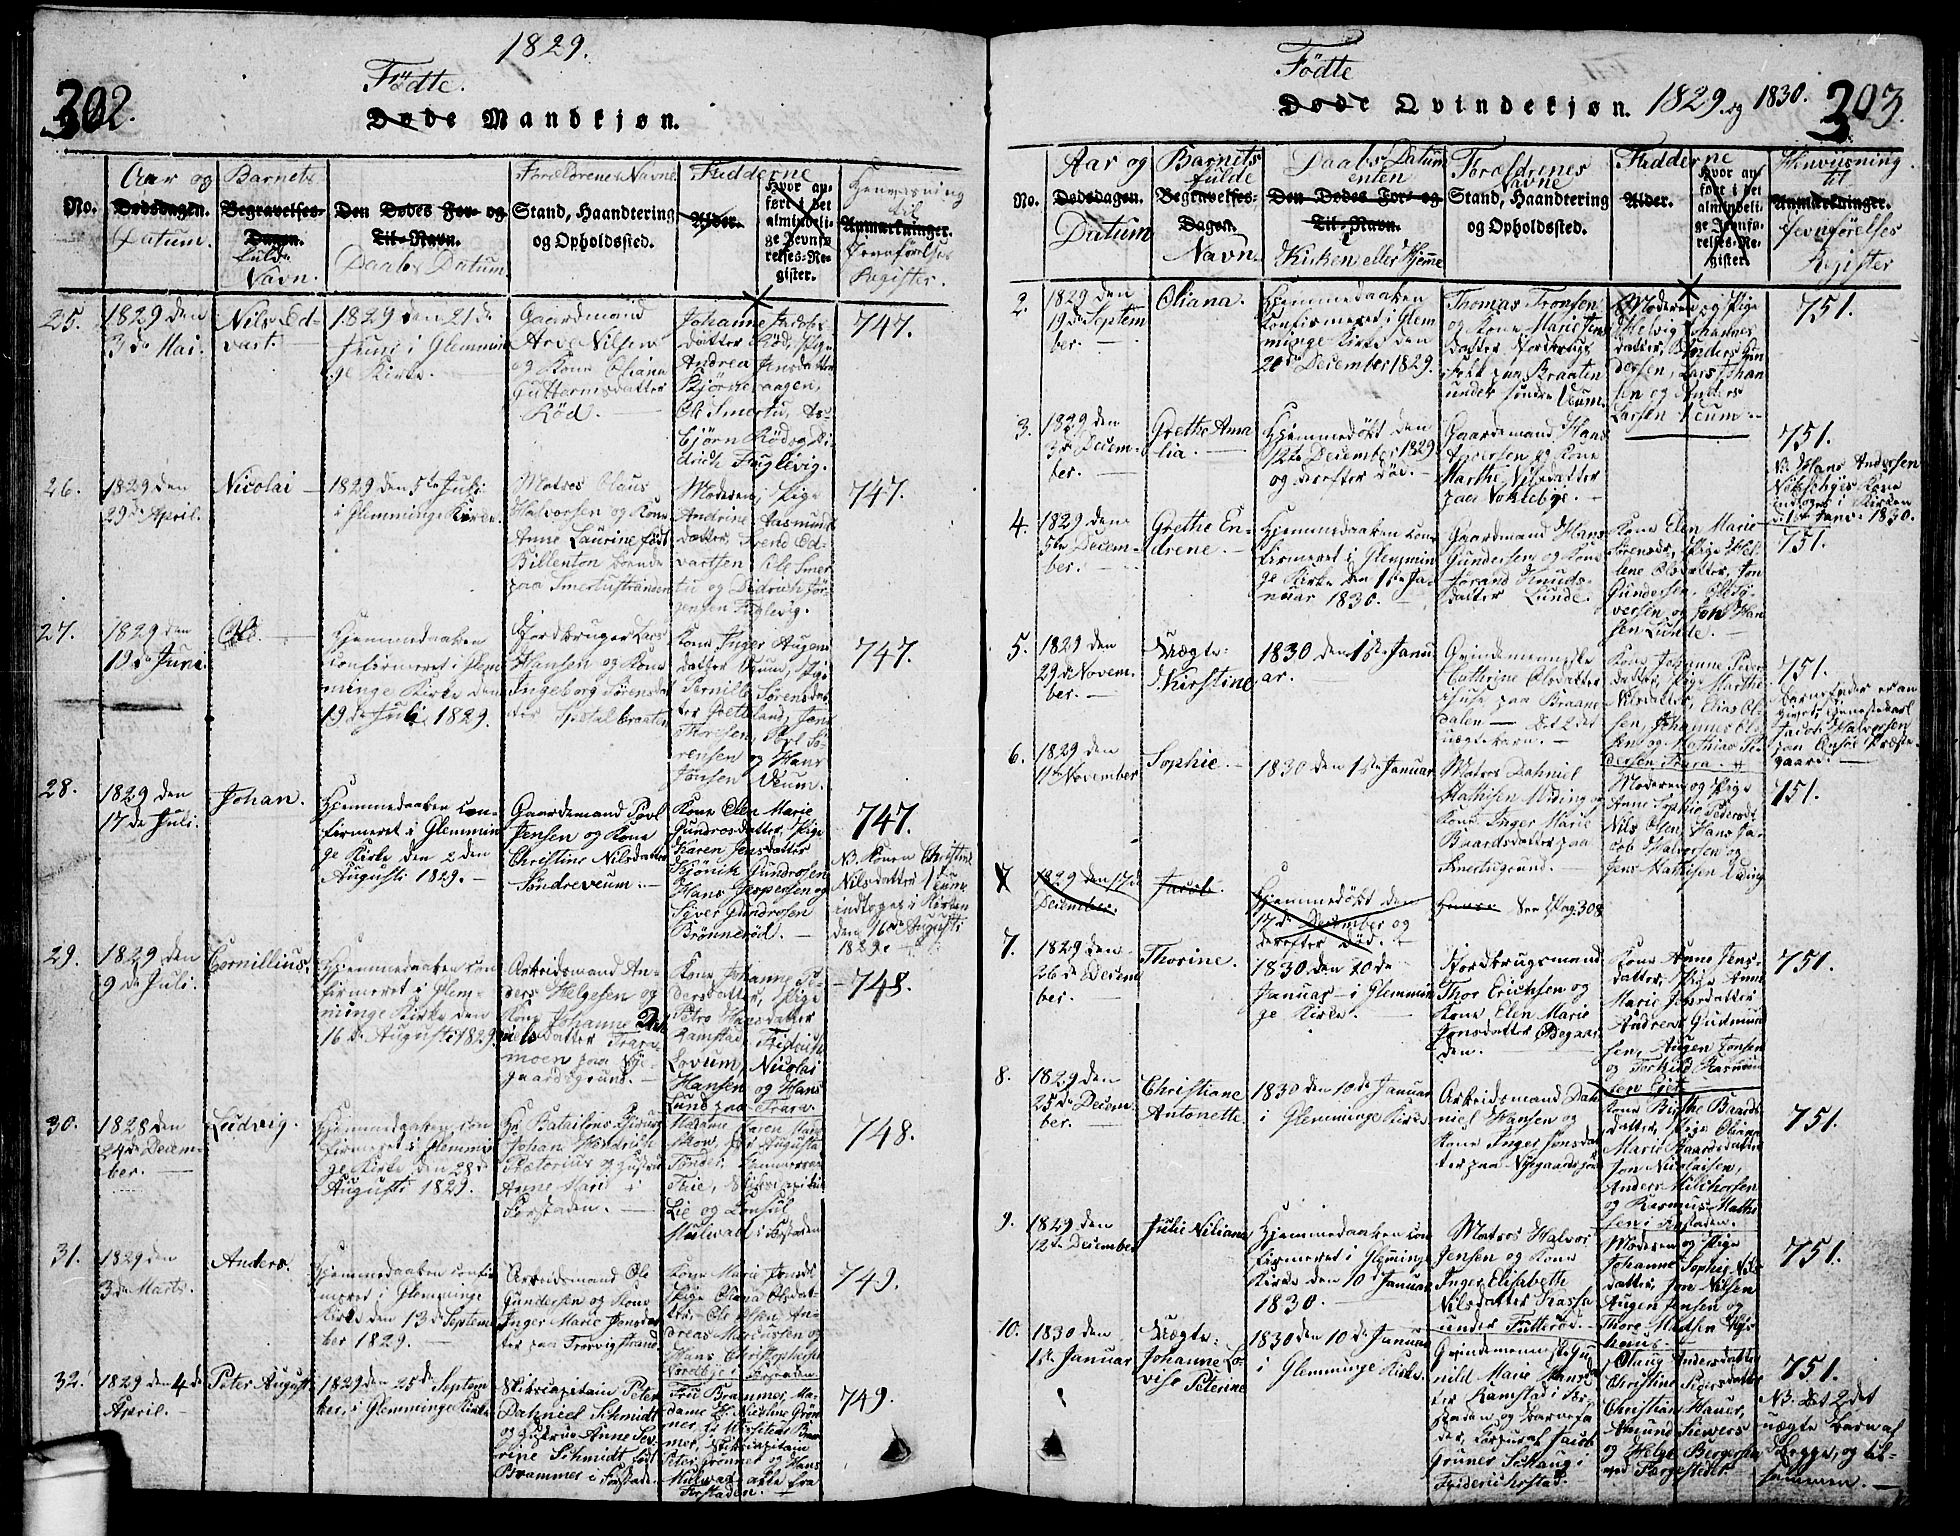 1829.
302.
Födte.
Døde Mandkjøn.
No.
Aar og
Dødsdagen.
Datum.
Barnets
Begravelses-
Dagen.
fulde
Navn.
Den Dødes For- og
Til-Navn.
Daabs Datum.
Forældrenes Navne
Stand, Haandtering
og Opholdssted.
Fadderne
Alder.
Hvor an-
ført i det
almindeli-
ge Jevnfø-
relses-Re-
gister.
Henvisning
til
Anmærkninger.
Jevnførelses
Register.
25.
1829 den
3de Mai.
Nils Ed-
vart.
1829 den 21de
Juni i Glemmin-
ge Kirke.
Gaardmand
Arve Nilsen
og Kone Oliana
Guttormsdatter
Rød.
Johanne Jacobs-
datter Rød, Pige
Andrea Jensdatter
Bjørneaagen,
Ole Smertu, As-
bjørn Rød og Di-
drich Fuglevig.
747.
26.
1829 den
29de April.
Nicolai
1829 den 5te Juli
i Glemminge Kirke.
Matros Olaus
Halvorsen og Kone
Anne Laurine født
Billenton boende
paa Smertustranden
Moderen, Pige
Andrine Aasmunds
datter, Svend Ed-
vartsen, Ole Smer-
tu og Didrich Jør-
gensen Fuglevig.
747.
27.
1829 den
19de Juni.
Ole.
Hjemmedaaben
confirmeret i Glem-
minge Kirke den
19de Juli 1829.
Jordbruger Lars
Hansen og Kone
Ingeborg Sørensdat-
ter Spetalbraaten
Kone Inger Augens
datter Veum, Pige
Pernille Sørensdat-
ter Gretteland, Jens
Thoresen, Povl Sø-
rensen og Hans
Jensen Veum.
747.
28.
1829 den
17de Juli.
Johan.
Hjemmedaaben con-
firmeret i Glemmin-
ge Kirke den 2den
Augusti 1829.
Gaardemand Povl
Jensen og Kone
Christine Nilsdatter
Søndreveum.
Kone Elen Marie
Gundrosdatter, Pige
Karen Jensdatter
Kjønik Gundrosen
Hans Jespersen og
Siver Gundrosen
Brønnerød.
747.
NB. Konen Christine
Nilsdatter Veum
indtoges i Kirken
den 16de Augusti
1829.
29.
1829 den
9de Juli.
Cornillius.
Hjemmedaaben con-
firmeret i Glem-
minge Kirke den
16de Augusti 1829.
Arbeidsmand An-
ders Helgesen og
Kone Johanne Dah-
nielsdatter Trara-
moen paa Ny-
gaardsgrund.
Kone Johanne Pe-
dersdatter, Pige
Petro Hansdatter
Ramstad, Fridrich
Lovum, Nicolai
Hansen og Hans
Lund paa Trara.
748.
30.
1828 den
24de Decem-
ber.
Ludvig.
Hjemmedaaben con-
firmeret i Glemmin-
ge Kirke den 28de
Augusti 1829.
Hr. Batailons Chirurg
Johan Heidrich
Prætorius og Hustru
Anne Marie i
Forstaden.
Madame Caren
748.
31.
1829 den
3de Marts.
Anders.
Hjemmedaaben confir-
meret i Glemminge
Kirke den 13de Septem-
ber 1829.
Arbeidsmand Ole
Gundersen og Kone
Inger Marie Jonsdat-
ter paa Trosvigstrand
Kone Marie Jensd.
Pige Oliana Olsdat-
ter, Ole Olsen, An-
dreas Marcussen og
Hans Christophersen
i Forstaden
749.
32.
1829 den 4de
April.
Peter August
1829 den 25de Septem-
ber, i Glemminge Kirke
Skibscapitain Peter
Dahniel Schmidt
og Hustrue Anne Se-
verine Schmidt født
Brammer i Forstaden.
Fru Brammer, Ma-
dame H. Nicoline Grøn-
ner, Skibscapitain
Peter Grønner og Hans
Hulwad - alle fra
Forstaden.
749.
Födte
Døde Qvindekjøn. 1829 og 1830.
303.
No.
Aar og
Dødsdagen.
Datum
Barnets
fulde
Begravelses-
Dagen.
Navn.
Daabs Datum
enten
Den Dødes For- og
Til-Navn.
i
Kirken eller Hjemme
Forældrenes
Navne
Stand, Haandtering
og Opholdssted.
Fadderne
Alder.
Hvor an-
ført i det
almindeli-
ge Jevnfø-
relses-Re-
gister.
Henviisning
til
Anmærkninger.
Jevnførelses
Register
2.
1829 den
19de Septem
ber.
Oliana.
Hjemmedaaben
Konfirmeret i Glem
minge Kirke den
20de December 1829.
Thomas Tronsen
og Kone Marie Sten-
datter
paa Braaten
under Søndre Veum.
Moderen og Pige
Helvig Johannes
datter, Anders An-
dersen, Lars Johan
sen og Anders
Larsen Veum.
751.
3.
1829 den
3de Decem-
ber.
Grethe Ama
lia.
Hjemmedøbt den
12te December 1829
og derefter død.
Gaardemand Hans
Andersen og Kone
Marthe Nilsdatter
paa Nøkleby.
751.
NB. Hans Andersen
Nøklebyes Kone
indtoges i Kirken
den 1ste Janu: 1830.
4.
1829 den
5te Decem-
ber.
Grethe En-
drene.
Hjemmedaaben con
firmeret i Glemmin
ge Kirke den 1ste Ja-
nuar 1830.
Gaardmand Hans
Gundersen og Kone
Jørand Knuds-
datter Lunde.
Kone Elen Marie
Sørensd., Pige Hel-
lene Olsdatter, Jon
Gundersen, Ole Sy-
versen og Jon Han-
sen Lunde.
751.
5.
1829 den
29de Novem-
ber.
Uægte:
Kirstine
1830 den 1ste Janu
ar.
Qvindemenniske
Cathrine Olsdatter
Huse paa Braane
dalen - Det 2det
uægte barn.
Kone Johanne Peders
datter, Pige Marthe
Nilsdatter, Elias Ol-
sen, Johannes Ol-
sen og Mathias Pe-
dersen Trara.
751.
Barnefader er an
givet, tjenestekarl
Jacob Halvorsen
paa Onsøe Præste-
gaard.
6.
1829 den
11te November
Sophie.
1830 den 1ste Januar
Matros Dahniel
Mathisen Viding og
Kone Inger Marie
Baardsdatter paa
Smertugrund.
Moderen og Pige
Anne Sophie Pedersdt.
Nils Olsen, Hans Ja-
cob Halvorsen og
Jens Mathisen Viding
751.
7
1829 den 17de
December.
Jacob.
Hjemmedøbt den
17de December og
derefter død.
See Pag 308
7.
1829 den
26de Decem
ber.
Thorine.
1830 den 20de
Januar - i Glemmin
ge Kirke.
Jordbrugsmand
Thor Erichsen og
Kone Elen Marie
Jonsdatter Ødegaar
den.
Kone Anne Jens-
datter, Pige Anne
Marie Jensdatter
Andreas Gudmund
sen, Augen Jonsen
og Torkild Rasmus
sen Eie
751.
8.
1829 den
25de Decem-
ber.
Christiane
Antonette
1830 den 10de Januar
i Glemminge Kirke.
Arbeidsmand Dah-
niel Hansen og
Kone Inger Jonsdat
ter paa Nygaardsgrd
Kone Birthe Baards
datter, Pige Oliana
Marie Baardsdatter
Jon Nicolaisen,
Anders Milchorsen
og Rasmus Mathi
sen i Forstaden.
751.
9.
1829 den
12te December
Julie Niliana
Hjemmedaaben con
firmeret i Glemminge
Kirke den 10de Januar
1830.
Matros Halvor
Jensen og Kone
Inger Elisabeth
Nilsdatter Kassa
under Tutterød.
Moderen og Pige
Johanne Sophie Nils
datter, Jon Nilsen
Augen Jensen og
Thore Madsen
751.
10.
1830 den
1ste Januar
Uægte:
Johanne Lo
vise Peterine
1830 den 10de Januar
i Glemminge Kirke.
Qvindemenniske Gu
nild Marie Hansdat
ter Ramstad i For
staden og Barnefa
der, Korporal Jacob
Gruner Schaug i
Friderichstad.
Olaug Andersdatter
Christine Pedersdatter
Christian Hauer,
Amund Siewers
og Helge Bergersen
ved Færgestedet.
751.
NB. Det 2det
uægte barn af
begge, og til-
sammen.